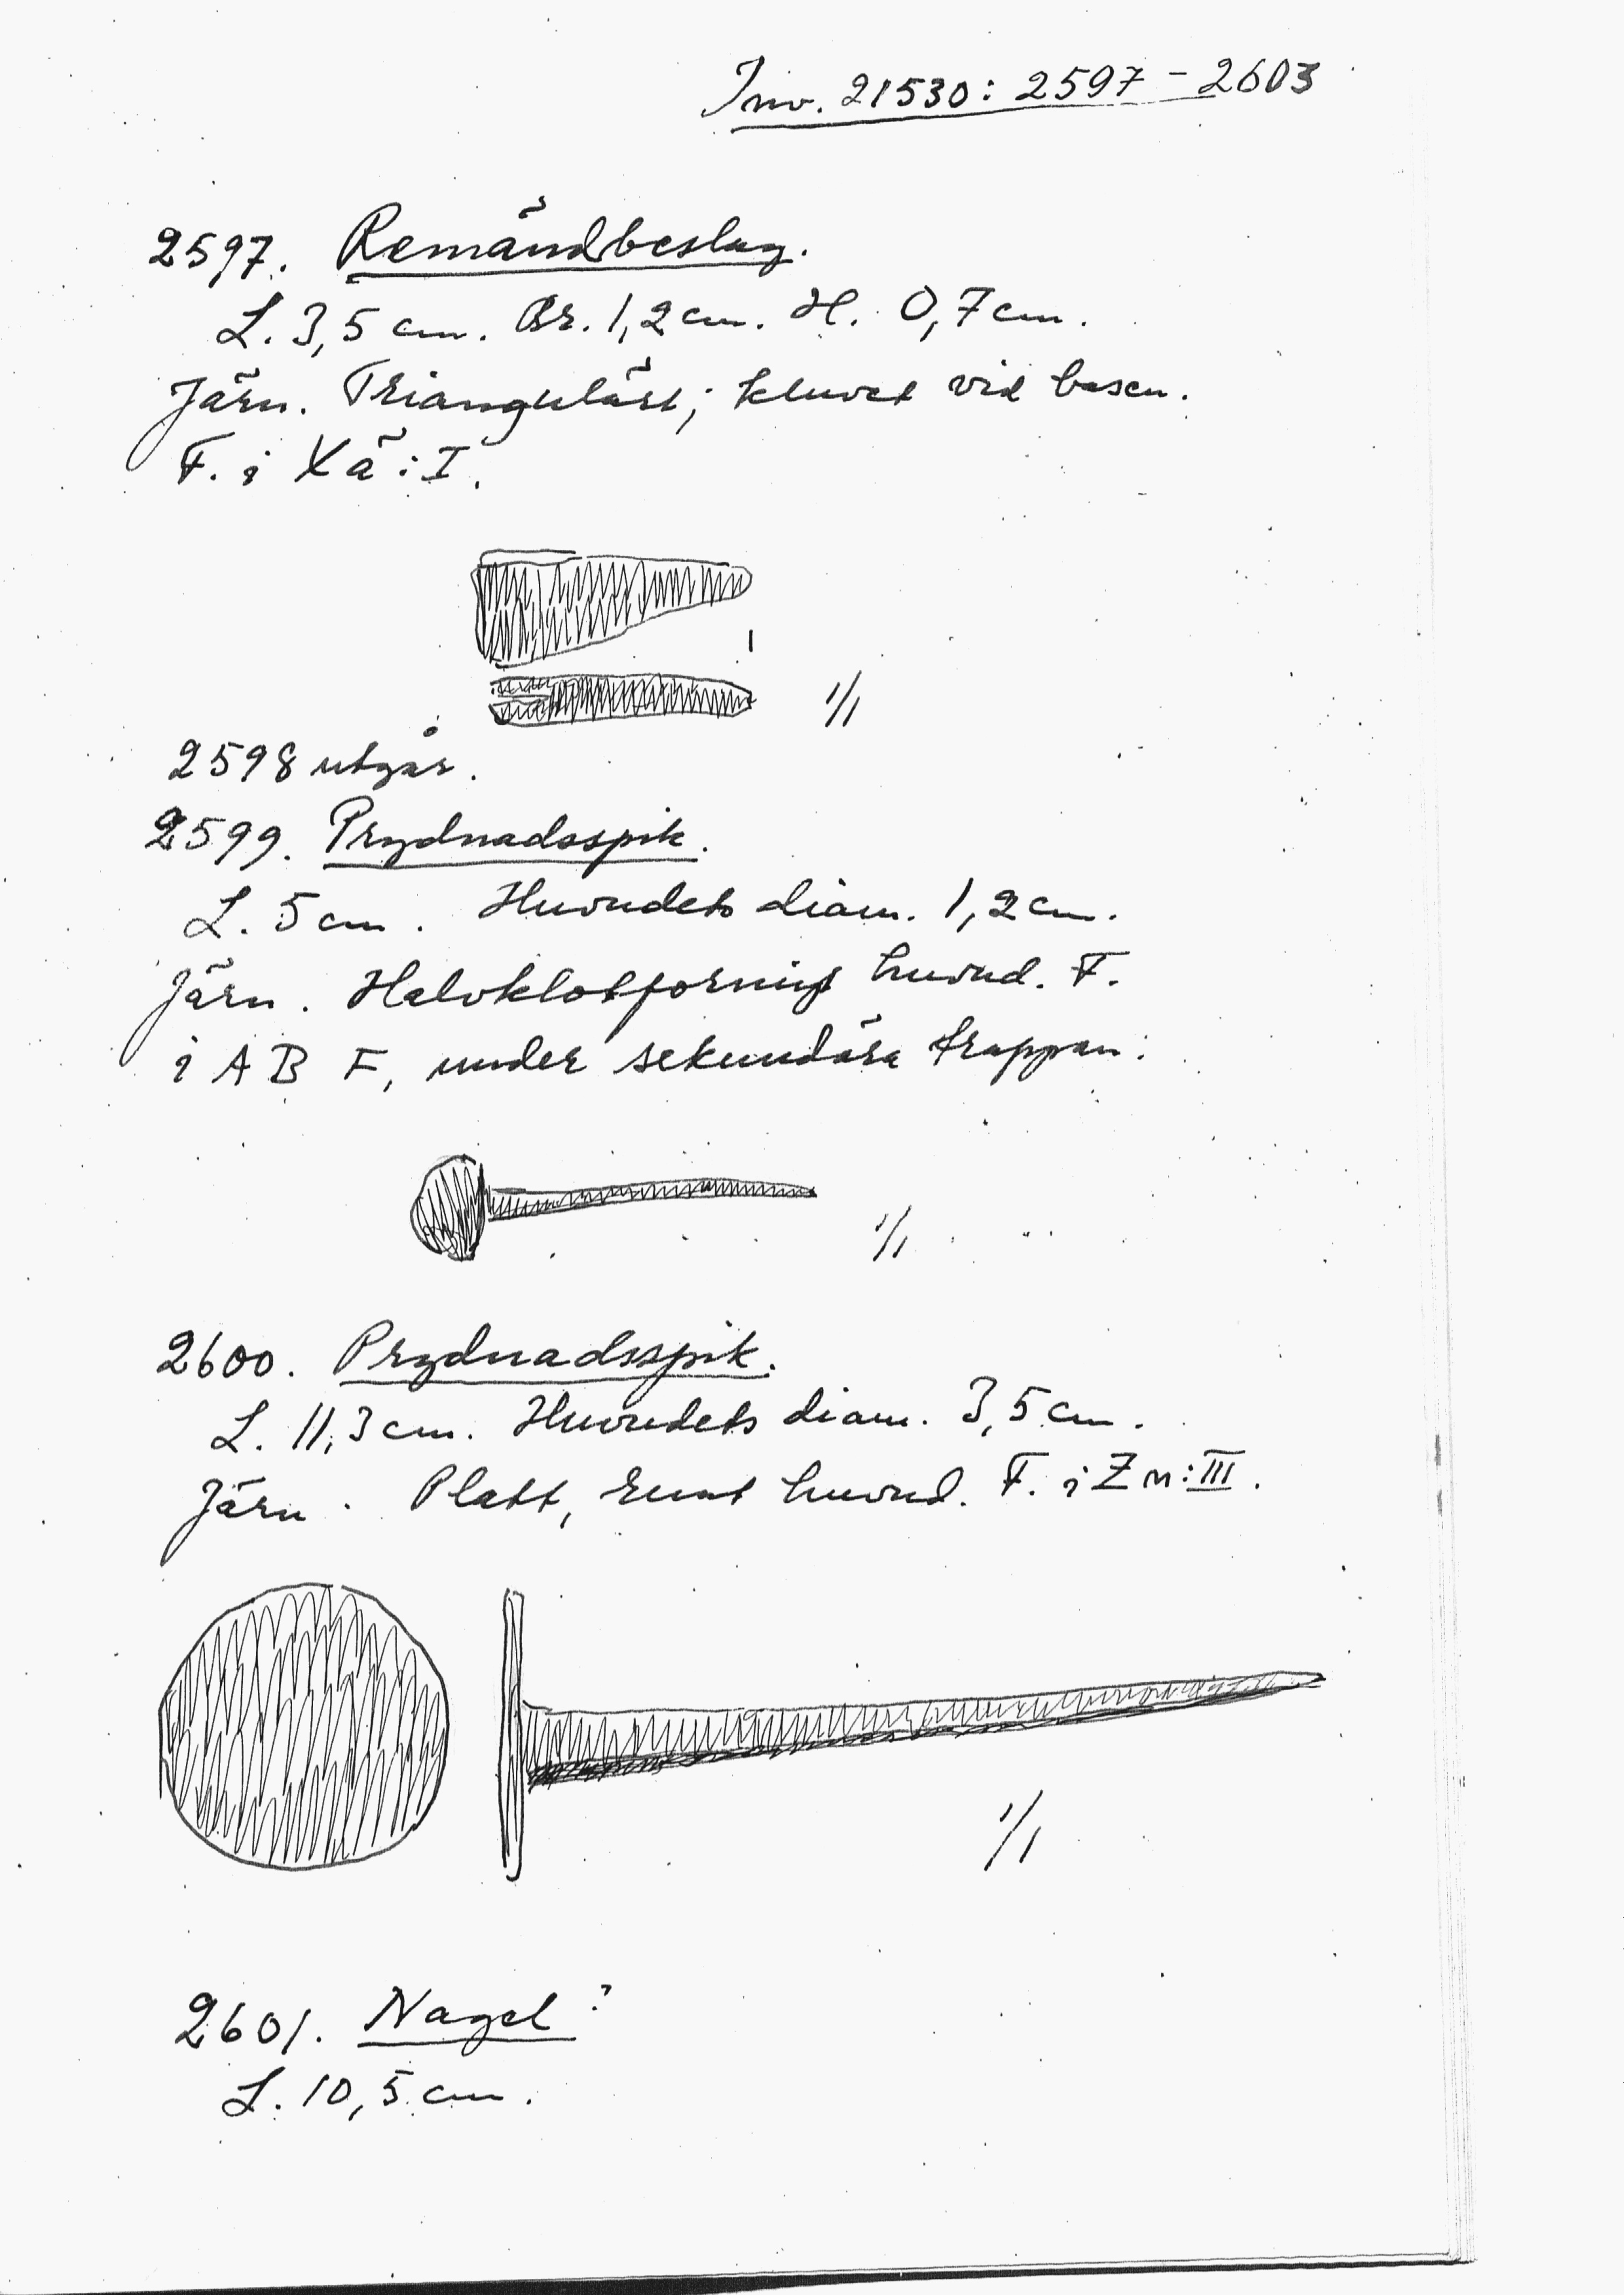 Inv. 21530: 2597 - 2603
2597. Remändbeslag.
L. 3,5 cm. Br. 1,2 cm. H. 0,7 cm.
Järn. Triangulärt; kluvet vid basen.
F. i Xä:I.
1/1
2598 utgår.
2599. Prydnadsspik.
L. 5 cm. Huvudets diam. 1,2 cm.
Järn. Halvklotformigt huvud. F.
i A B F, under sekundära trappan.
1/1
2600. Prydnadsspik.
L. 11,3 cm. Huvudets diam. 3,5 cm.
Järn. Platt, runt huvud. F. i Z n:III.
1/1
2601. Nagel?
L. 10,5 cm.